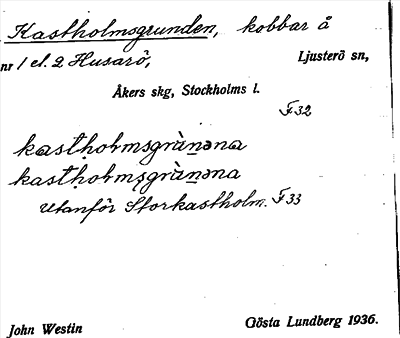 Kastholmsgrunden, kobbar å
nr 1 el. 2 Husarö, Ljusterö sn,
Åkers skg, Stockholms l.
F 32
kastḥoḷmsgrùṉəna
kastḥoḷmşgrùṉəna
Utanför Storkastholm. F 33
John Westin Gösta Lundberg 1936.